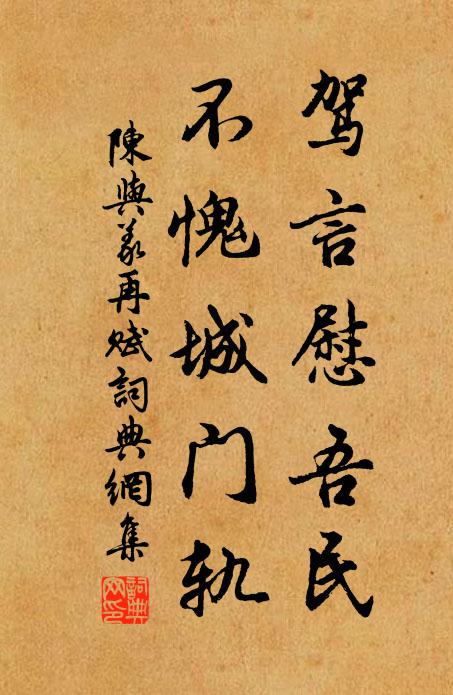 驾言慰吾民
不愧城门轨
陳與義再赋詞典網集
詞典
网印